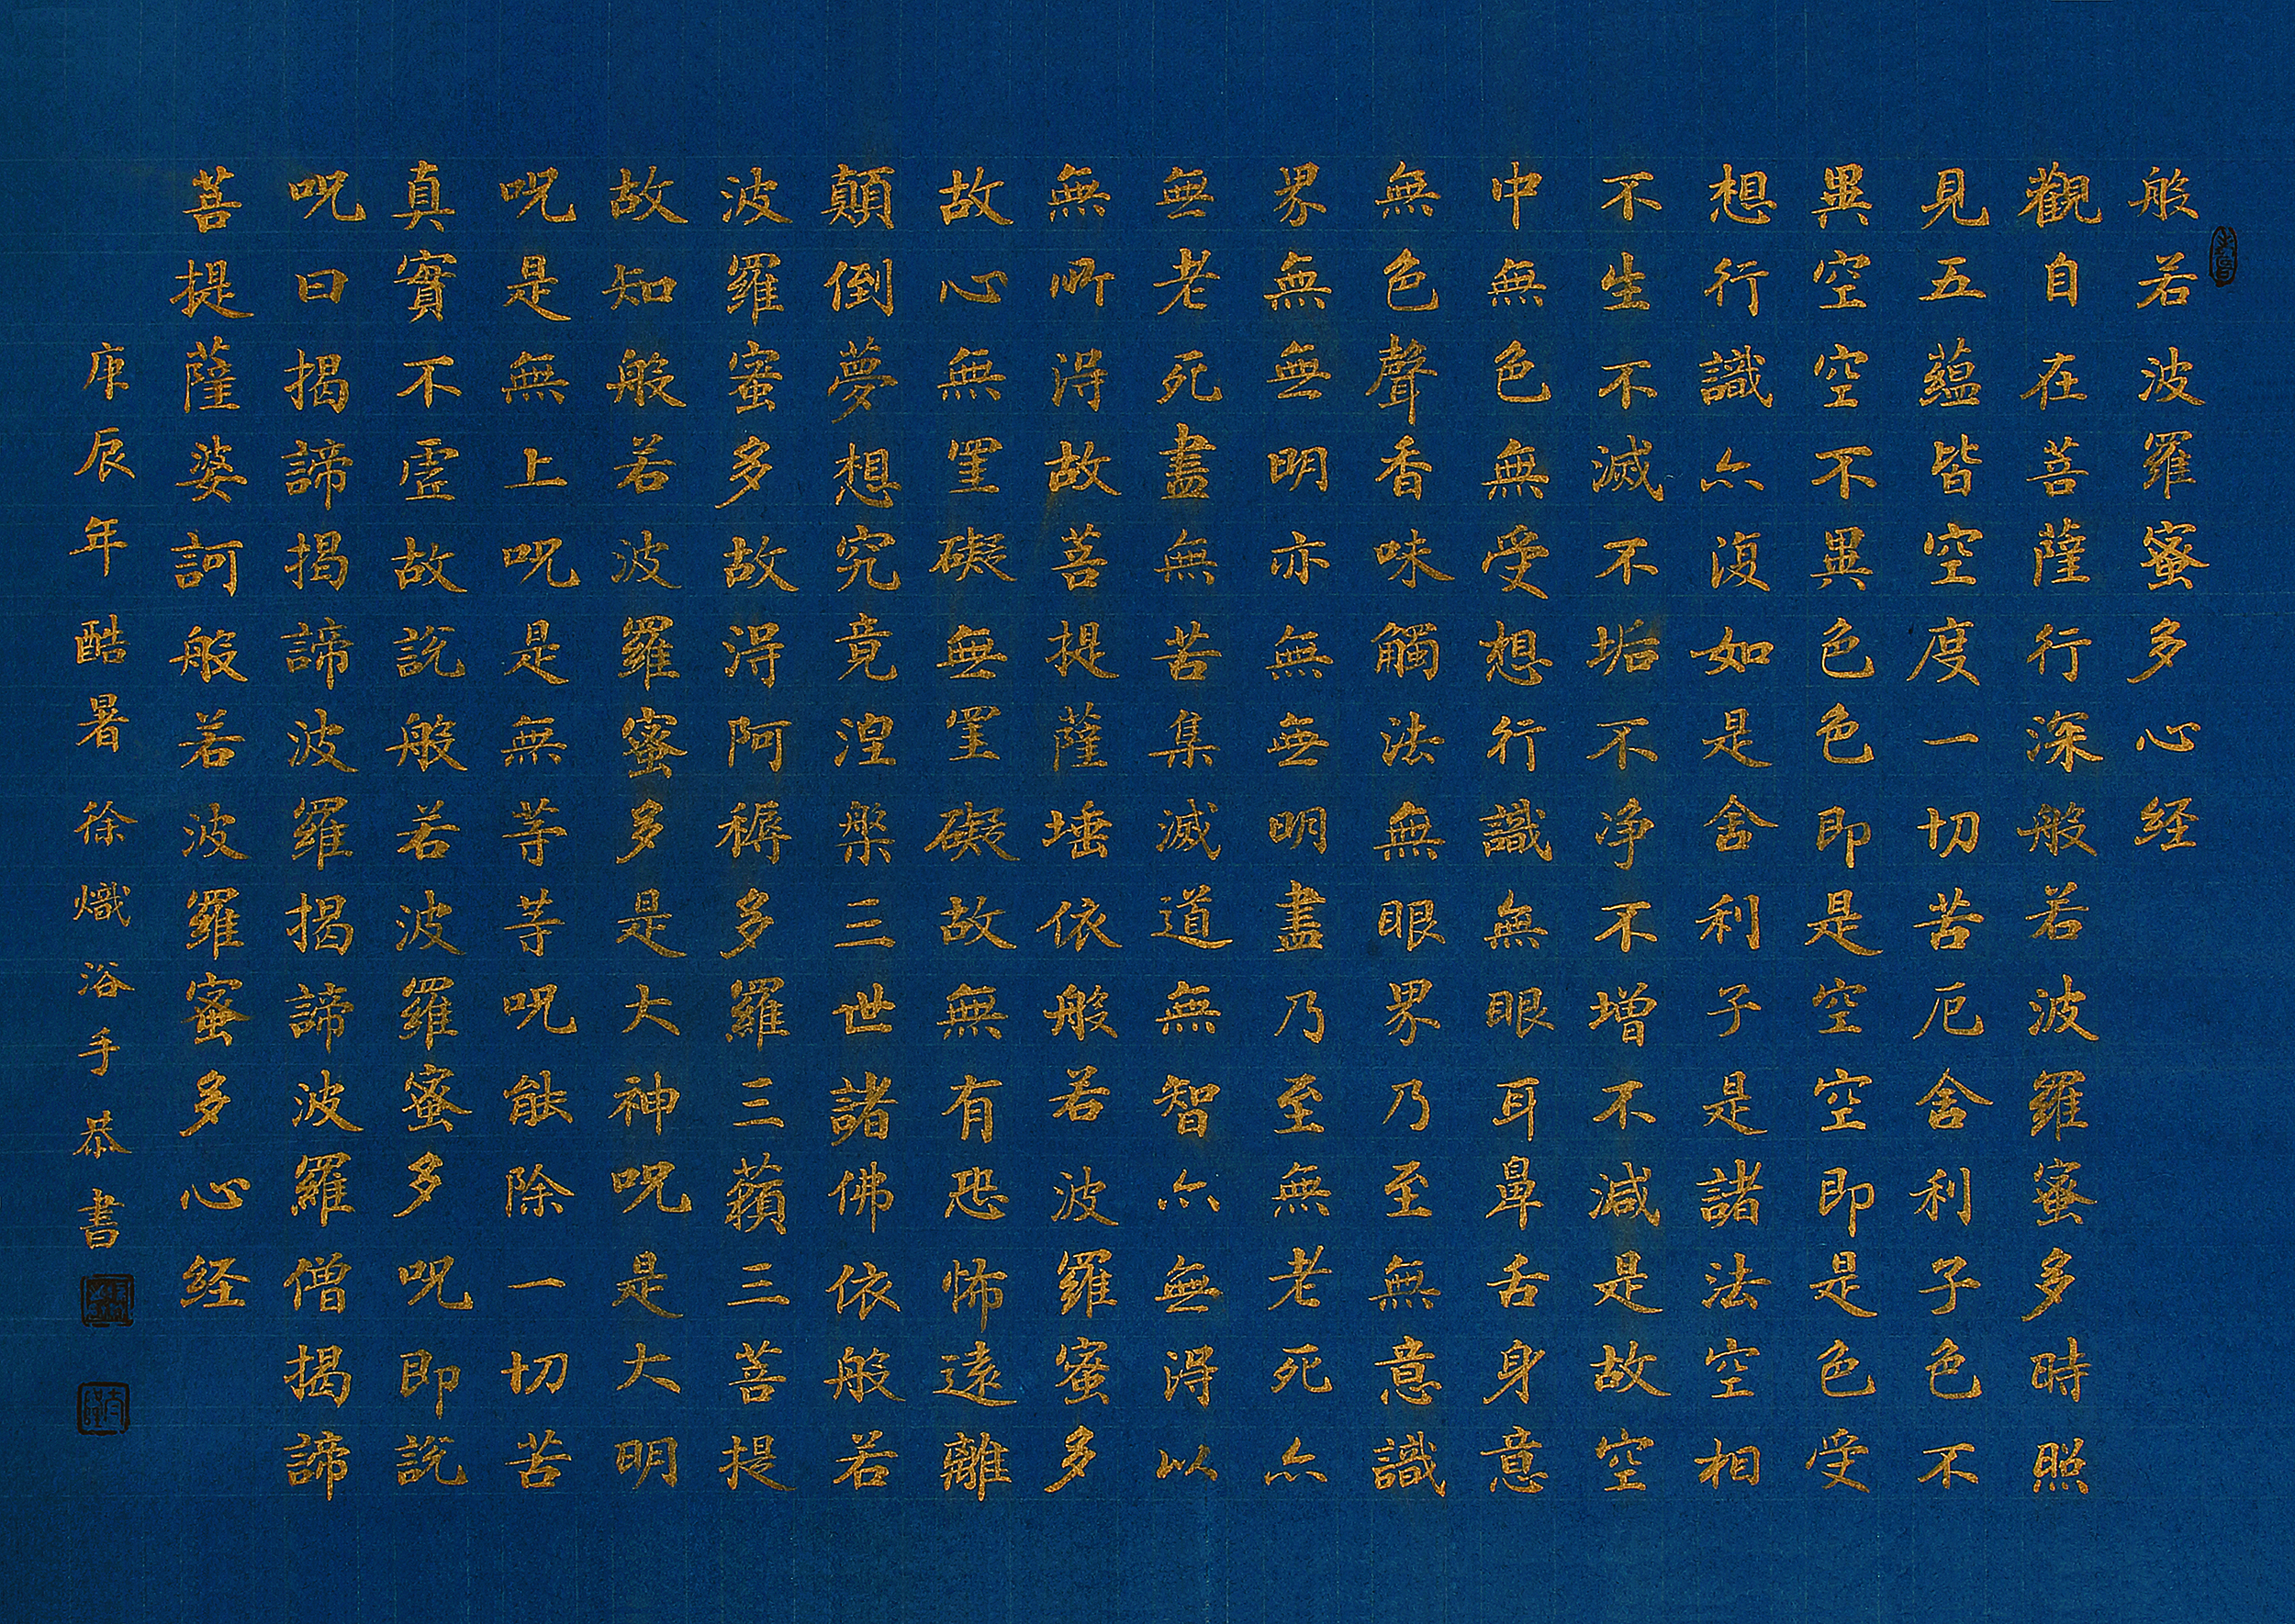 般若波羅蜜多心経
觀自在菩薩行深般若波羅蜜多時照
見五蘊皆空度一切苦厄舍利子色不
異空空不異色色即是空空即是色受
想行識亦復如是舍利子是諸法空相
不生不滅不垢不净不增不減是故空
中無色無受想行識無眼耳鼻舌身意
無色聲香味觸法無眼界乃至無意識
界無無明亦無無明盡乃至無老死亦
無老死盡無苦集滅道無智亦無得以
無所得故菩提薩埵依般若波羅蜜多
故心無罣礙無罣礙故無有恐怖遠離
顛倒夢想究竟涅槃三世諸佛依般若
波羅蜜多故得阿耨多羅三藐三菩提
故知般若波羅蜜多是大神呪是大明
呪是無上呪是無等等呪能除一切苦
真實不虛故說般若波羅蜜多呪即說
呪曰揭諦揭諦波羅揭諦波羅僧揭諦
菩提薩婆訶般若波羅蜜多心経
庚辰年酷暑徐熾浴手恭書